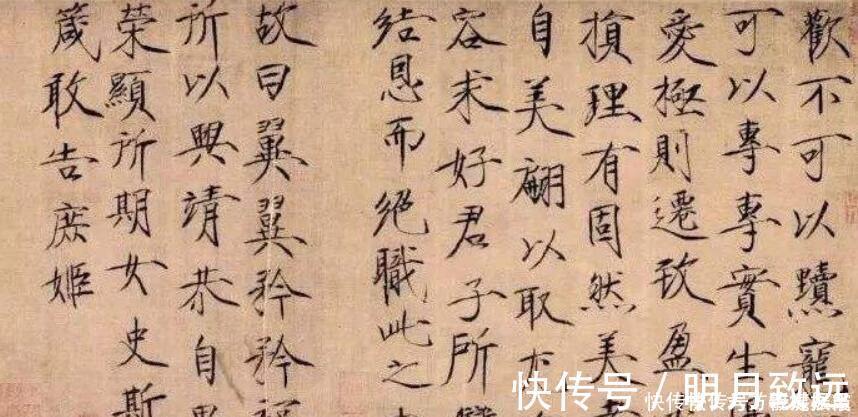 歡不可以黷寵
可以專專實生
愛極則遷致盈
損理有固然美
自美翩以取
容求好君子所
结恩而絕職此之
故曰翼翼矜矜福
所以興靖恭自思
榮顯所期女史斯
箴敢告庶姬
快传号 / 明月致远